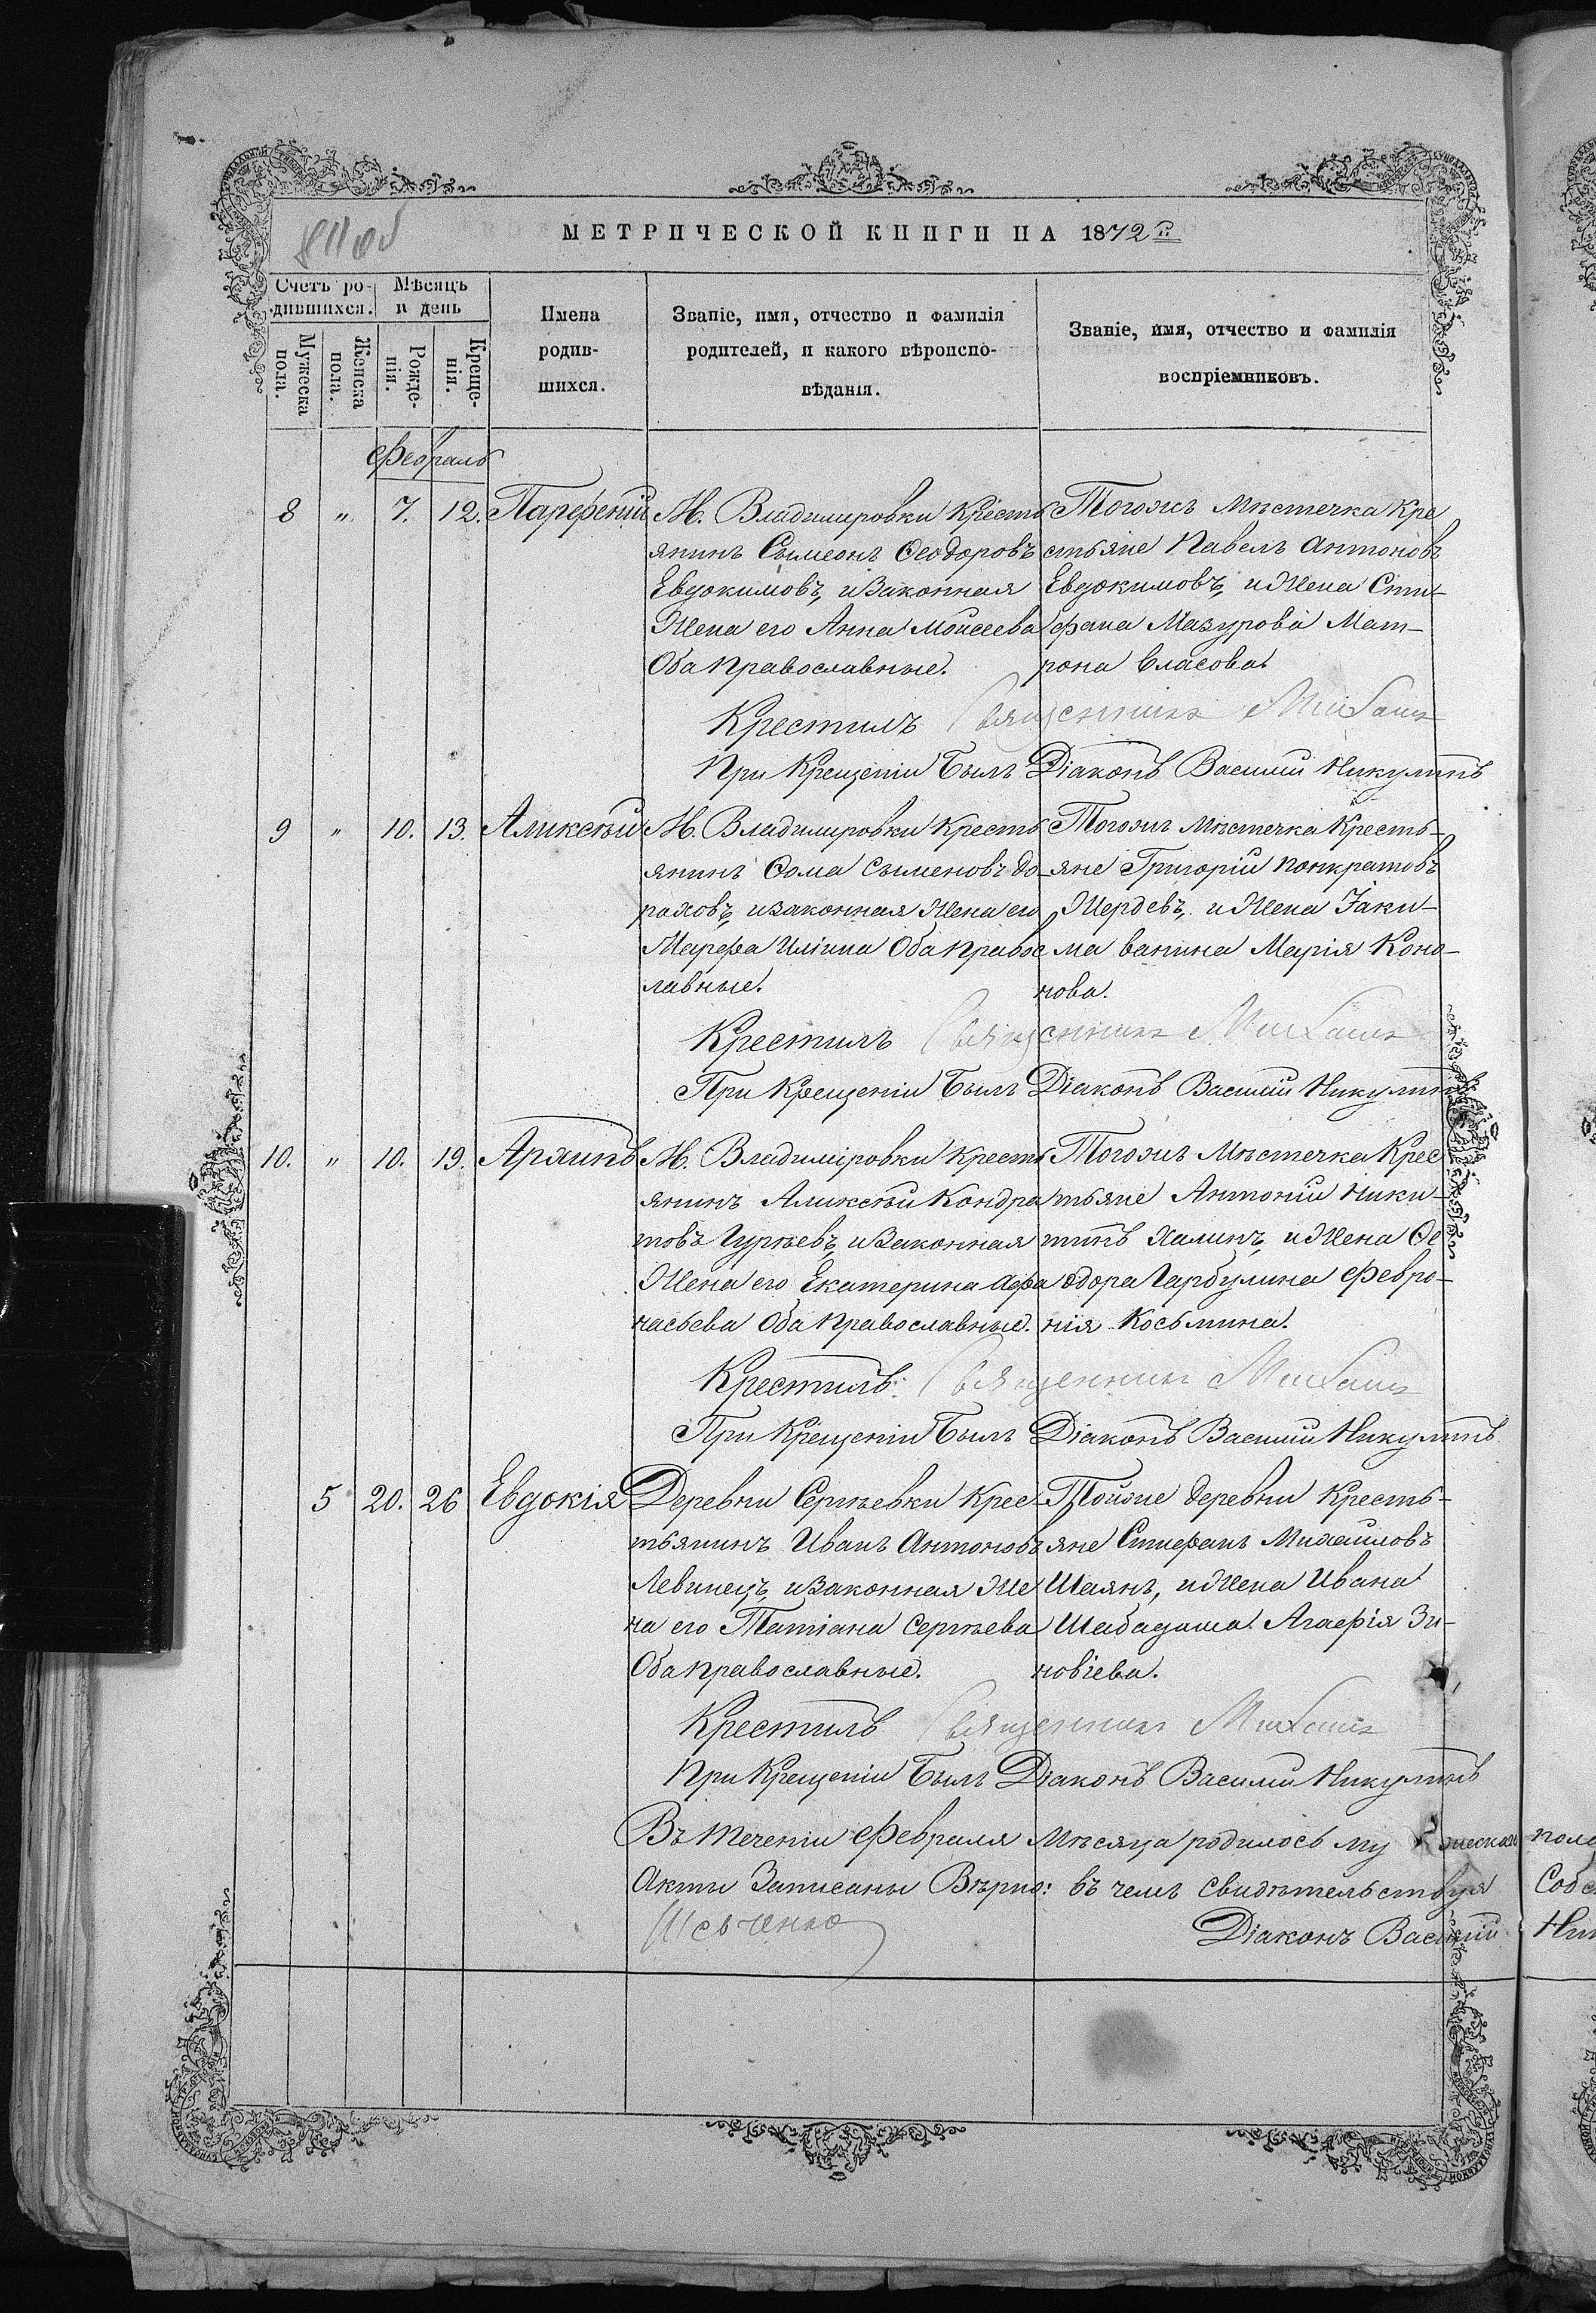 МЕТРИЧЕСКОЙ КНИГИ НА 1872 г.
Счетъ родившихся.
Мѣсяцъ и день
Мужеска пола.
Женска пола.
Рожденія.
Крещенія.
Имена
родив-
шихся.
Званіе, имя, отчество и фамилія
родителей, и какого вѣроиспо-
вѣданія.
Званіе, имя, отчество и фамилія
воспріемниковъ.
Февраль
8 " 7. 12. Парфеній
М. Владимировки Кресть
янинъ Сѵмеонъ Ѳеодоровъ
Евдокимовъ, и Законная
Жена его Анна Моисеева
Оба православные.
Тогожъ Мѣстечка Кре
стьяне Павелъ Антоновъ
Евдокимовъ, и Жена Сти-
фана Мазурова Мат-
рона Власова.
Крестилъ Священникъ
При Крещеніи Былъ Діаконъ Василій Никулинъ
9 " 10. 13. Аликсѣй
М. Владимировки Кресть
янинъ Ѳома Сѵменовъ До-
роховъ, и законная Жена его
Марѳа Иліина Оба правос
лавные.
Тогожъ Мѣстечка Кресть-
яне Григорій Понкратовъ
Жердевъ, и Жена Іаки-
ма Ванина Марія Коно-
нова.
Крестилъ Священникъ
При Крещеніи Былъ Діаконъ Василій Никулинъ
10. " 10. 19.
М. Владиміровки Кресть
янинъ Аликсѣй Кондра
товъ Гурѣевъ, и Законная
Жена его Екатерина Афа
насьева Оба Православные.
Тогожъ Мѣстечка Крес
тьяне Антоній Ники-
тинъ Халинъ, и Жена Ѳе
одора Гарбулина Февро-
нія Косьмина.
Крестилъ: Священникъ
При Крещеніи Былъ Діаконъ Василій Никулинъ
5 20. 26 Евдокія
Деревни Сергѣевки Крес-
тьянинъ Иванъ Антоновъ
Левинецъ, и Законная Же
на его Татіана Сергѣева
Оба православные.
Тойже деревни Кресть-
яне Стифанъ Михаиловъ
Шаянъ, и Жена Ивана
Шабадаша Агафія Зи-
новіева.
Крестилъ Священникъ
При Крещеніи Былъ Діаконъ Василій Никулинъ
Въ теченіи Февраля Мѣсяца родилось му жеска пола
Акты Записаны Вѣрно: въ чемъ свидѣтельствуя
Діаконъ Василій